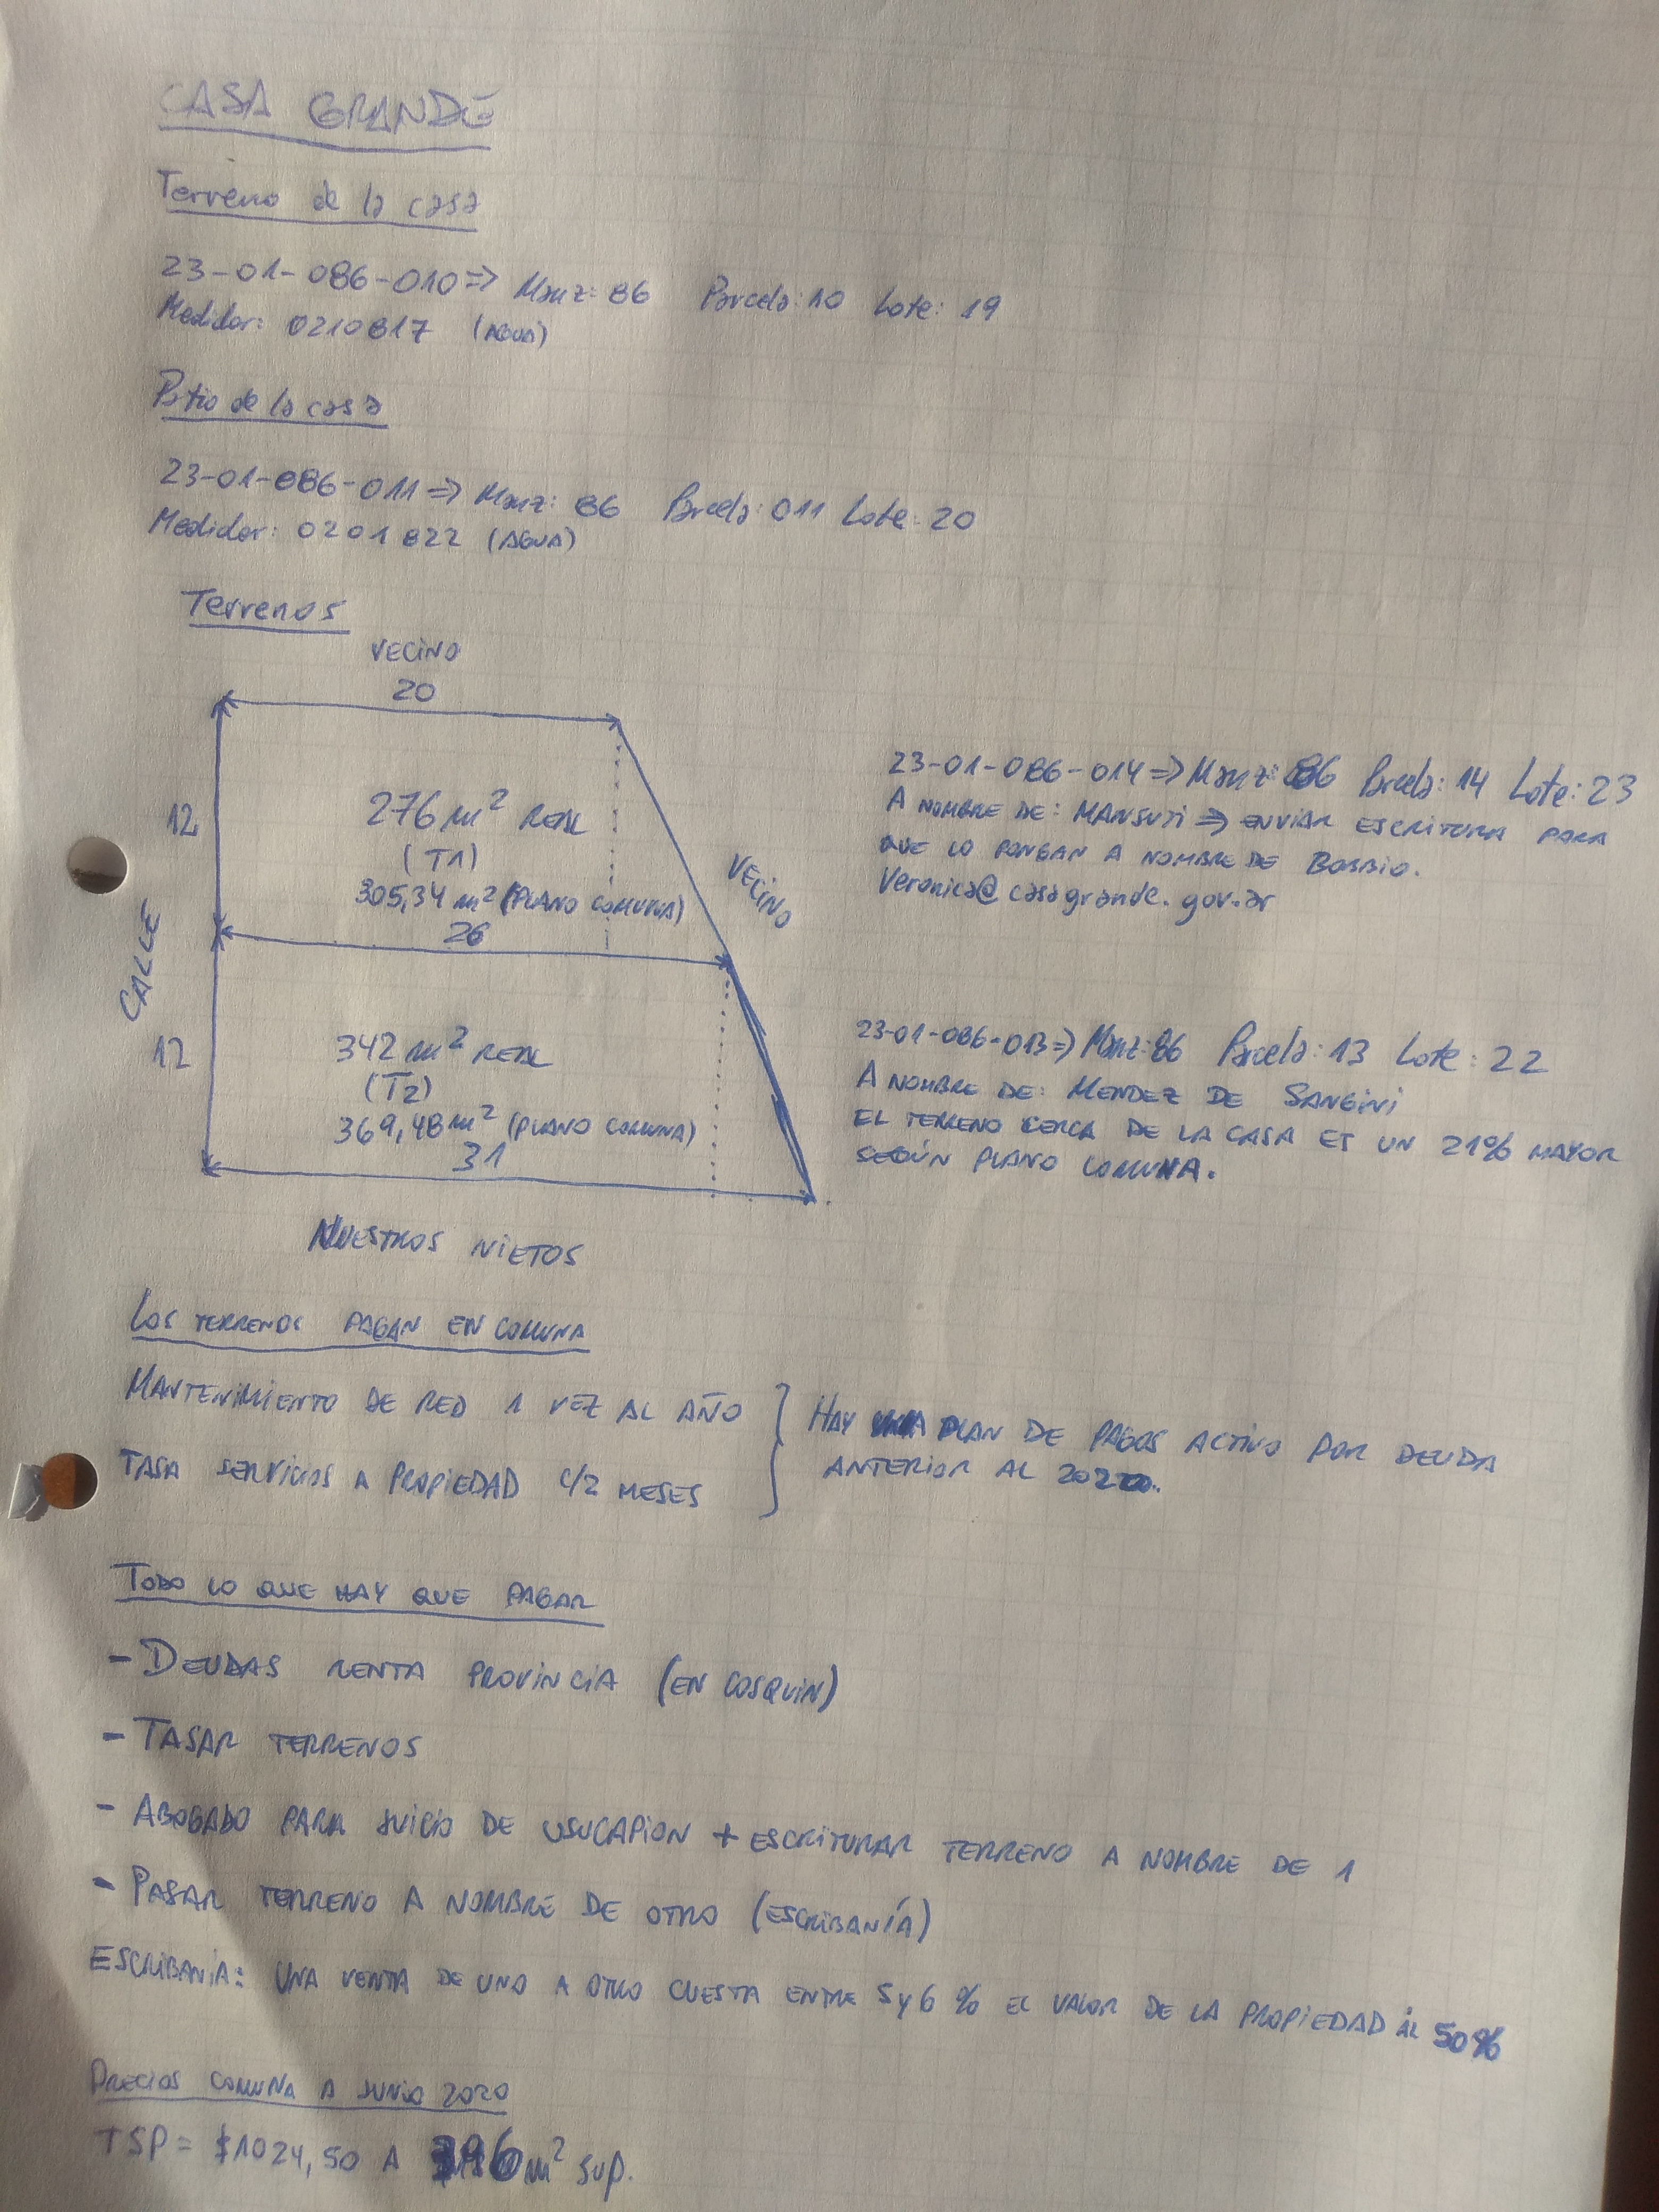 CASA GRANDE
Terreno de la casa
23-01-086-010 => Manz: 86 Parcela: 10 Lote: 19
Medidor: 0210817 (AGUA)
Patio de la casa
23-01-086-011 => Manz: 86 Parcela: 011 Lote: 20
Medidor: 0201822 (AGUA)
Terrenos
VECINO
20
12
276 m² REAL
(T1)
305,34 m² (PLANO COMUNA)
VECINO
CALLE
26
12
342 m² REAL
(T2)
369,48 m² (PLANO COMUNA)
31
NUESTROS NIETOS
23-01-086-014 => Manz: 86 Parcela: 14 Lote: 23
A NOMBRE DE: MANSUTI => ENVIAR ESCRITURA PARA
QUE LO PONGAN A NOMBRE DE BOBBIO.
Veronica@casagrande.gov.ar
23-01-086-013 => Manz: 86 Parcela: 13 Lote: 22
A NOMBRE DE: MENDEZ DE SANGINI
EL TERRENO CERCA DE LA CASA ES UN 21% MAYOR
SEGÚN PLANO COMUNA.
LOS TERRENOS PAGAN EN COMUNA
MANTENIMIENTO DE RED 1 VEZ AL AÑO
TASA SERVICIOS A PROPIEDAD C/2 MESES
HAY PLAN DE PAGOS ACTIVO POR DEUDA
ANTERIOR AL 2020.
TODO LO QUE HAY QUE PAGAR
- DEUDAS RENTA PROVINCIA (EN COSQUIN)
- TASAR TERRENOS
- ABOGADO PARA JUICIO DE USUCAPION + ESCRITURAR TERRENO A NOMBRE DE 1
- PASAR TERRENO A NOMBRE DE OTRO (ESCRIBANÍA)
ESCRIBANIA: UNA VENTA DE UNO A OTRO CUESTA ENTRE 5 y 6 % EL VALOR DE LA PROPIEDAD AL 50%
PRECIOS COMUNA A JUNIO 2020
TSP = $1024,50 A 396 m² sup.